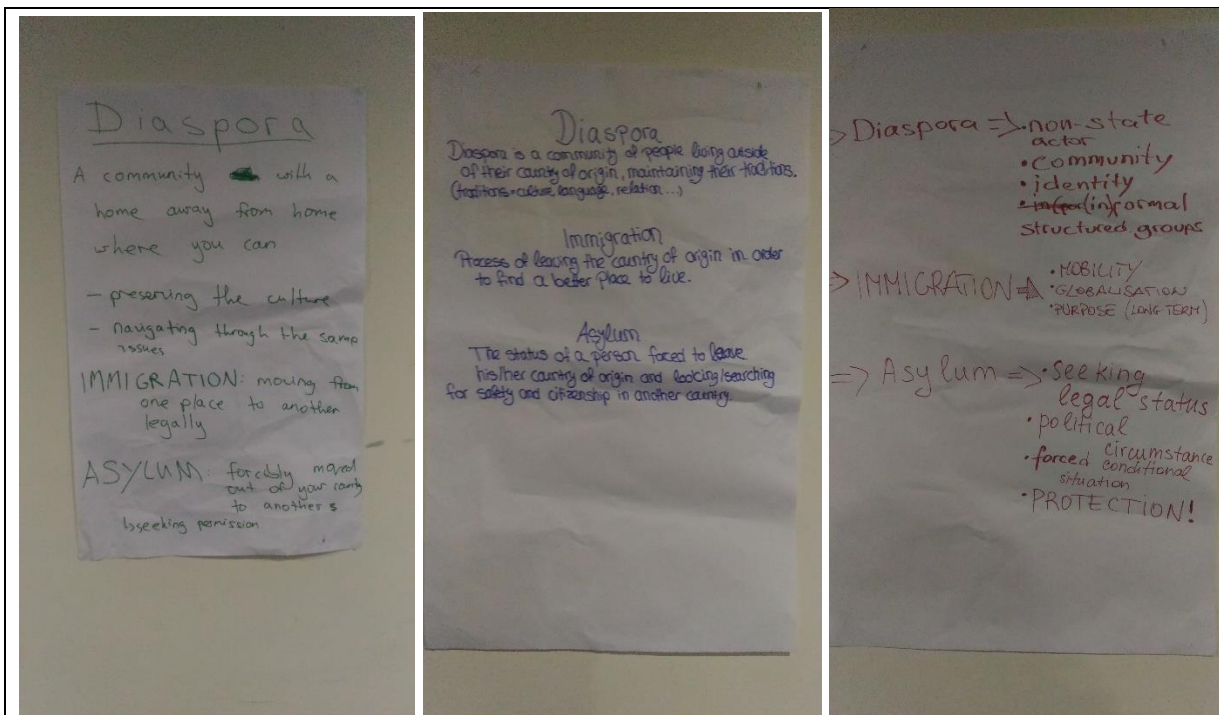 Diaspora
A community with a
home away from home
where you can
- preserving the culture
- navigating through the same
issues
IMMIGRATION: moving from
one place to another
legally
ASYLUM: forcibly moved
out of your
to another s
seeking permission
Diaspora
Diaspora is a community of people living outside
of their country of origin, maintaining their traditions.
(traditions=culture, language, relation...)
Immigration
Process of leaving the country of origin in order
to find a better place to live.
Asylum
The status of a person forced to leave
his/her country of origin and looking/searching
for safety and citizenship in another country.
Diaspora => • non-state
actor
• community
• identity
(in)formal
structured groups
=> IMMIGRATION => • MOBILITY
• GLOBALISATION
• PURPOSE (LONG TERM)
=> Asylum => • Seeking
legal status
• political
• forced circumstance
conditional
situation
• PROTECTION!